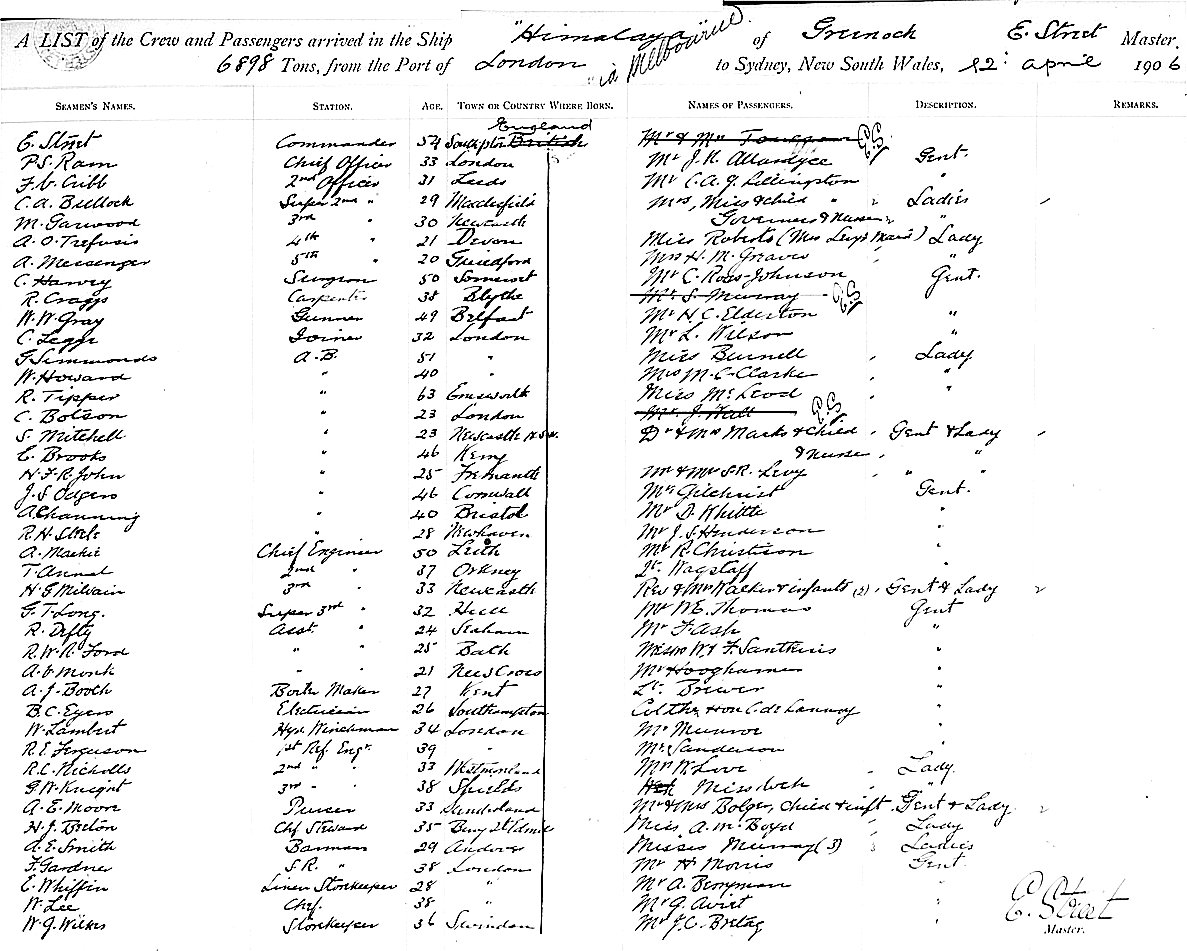 A LIST of the Crew and Passengers arrived in the Ship "Himalaya" of Greenock E. Street Master.
6898 Tons, from the Port of London via Melbourne to Sydney, New South Wales, 12 April 1906
SEAMEN'S NAMES. STATION. AGE. TOWN OR COUNTRY WHERE BORN. NAMES OF PASSENGERS. DESCRIPTION. REMARKS.
England
E. Street Commander 54 British Mr & Mrs ES
P.S. Ram Chief Officer 33 London Mr J.R. Allardyce Gent.
F.V. Cribb 2nd Officer 31 Leeds Mr C.A.G. Lillington "
C.A. Bullock Super 2nd " 29 Macclesfield Mrs, Miss & Child " Ladies
M. Garwood 3rd " 30 Newcastle Governess & Nurse "
A.O. Trefusis 4th " 21 Devon Miss Roberts (Mrs Levy's Maid) Lady
A. Messenger 5th " 20 Guildford Mrs H.M. Graves "
C. Harvey Surgeon 50 Somerset Mr C. Ross-Johnson Gent.
R. Craggs Carpenter 38 Blythe Mr S. Murray ES
W.W. Gray Gunner 49 Belfast Mr H.C. Elderton "
C. Legge Joiner 32 London Mr L. Wilson "
G. Simmonds A.B. 51 " Miss Burnell Lady
W. Howard " 40 " Mrs M.C. Clarke "
R. Tipper " 63 Emsworth Miss McLeod "
C. Botson " 23 London Mr J. Hall ES
S. Mitchell " 23 Newcastle N.S.W. Dr & Mrs Marks & Child Gent & Lady
E. Brooks " 46 Kerry & Nurse "
H.F.R. John " 25 Fremantle Mr & Mrs S.R. Levy " "
J.S. Odgers " 46 Cornwall Mr Gilchrist Gent.
A. Channing " 40 Bristol Mr D. Whittle "
R.H. Steele " 28 Newhaven Mr J.S. Henderson "
A. Mackie Chief Engineer 50 Leith Mr R. Christison "
T. Annal 2nd " 37 Orkney Lt. Wagstaff "
H.G. Milvain 3rd " 33 Newcastle Rev & Mrs Walker & infants (2) Gent & Lady
G.T. Long. Super 3rd " 32 Hull Mr W.E. Thomas Gent
R. Defty Asst. " 24 Seaham Mr F. Ash "
R.W.R. Ford " " 25 Bath "
A.V. Monk " " 21 New Cross Mr Hooghamer "
A.J. Booth Boiler Maker 27 Kent Lt. Brewer "
B.C. Eyers Electrician 26 Southampton Col the Hon C. de Lannoy "
W. Lambert Hyd. Winchman 34 London Mr Munroe "
R.E. Ferguson 1st Ref. Engr. 39 " Mr Sanderson "
R.C. Nicholls 2nd " " 33 Westmorland Mrs W. Love Lady.
G.W. Knight 3rd " " 38 Shields Miss "
A.E. Moore Purser 33 Sunderland Mr & Mrs Bolger, Child & inft Gent & Lady
H.J. Belton Chf Steward 35 Bury St Edmds Miss A.M. Boyd Lady
A.E. Smith Barman 29 Andover Misses Murray (3) Ladies
F. Gardner S.R. " 38 London Mr H. Morris Gent.
E. Whiffin Linen Storekeeper 28 " Mr A. Berryman "
W. Lee Chef. 38 " Mr G. Avist "
W.G. Wilkes Storekeeper 36 Swindon Mr J.C. Bretag "
E. Street
Master.